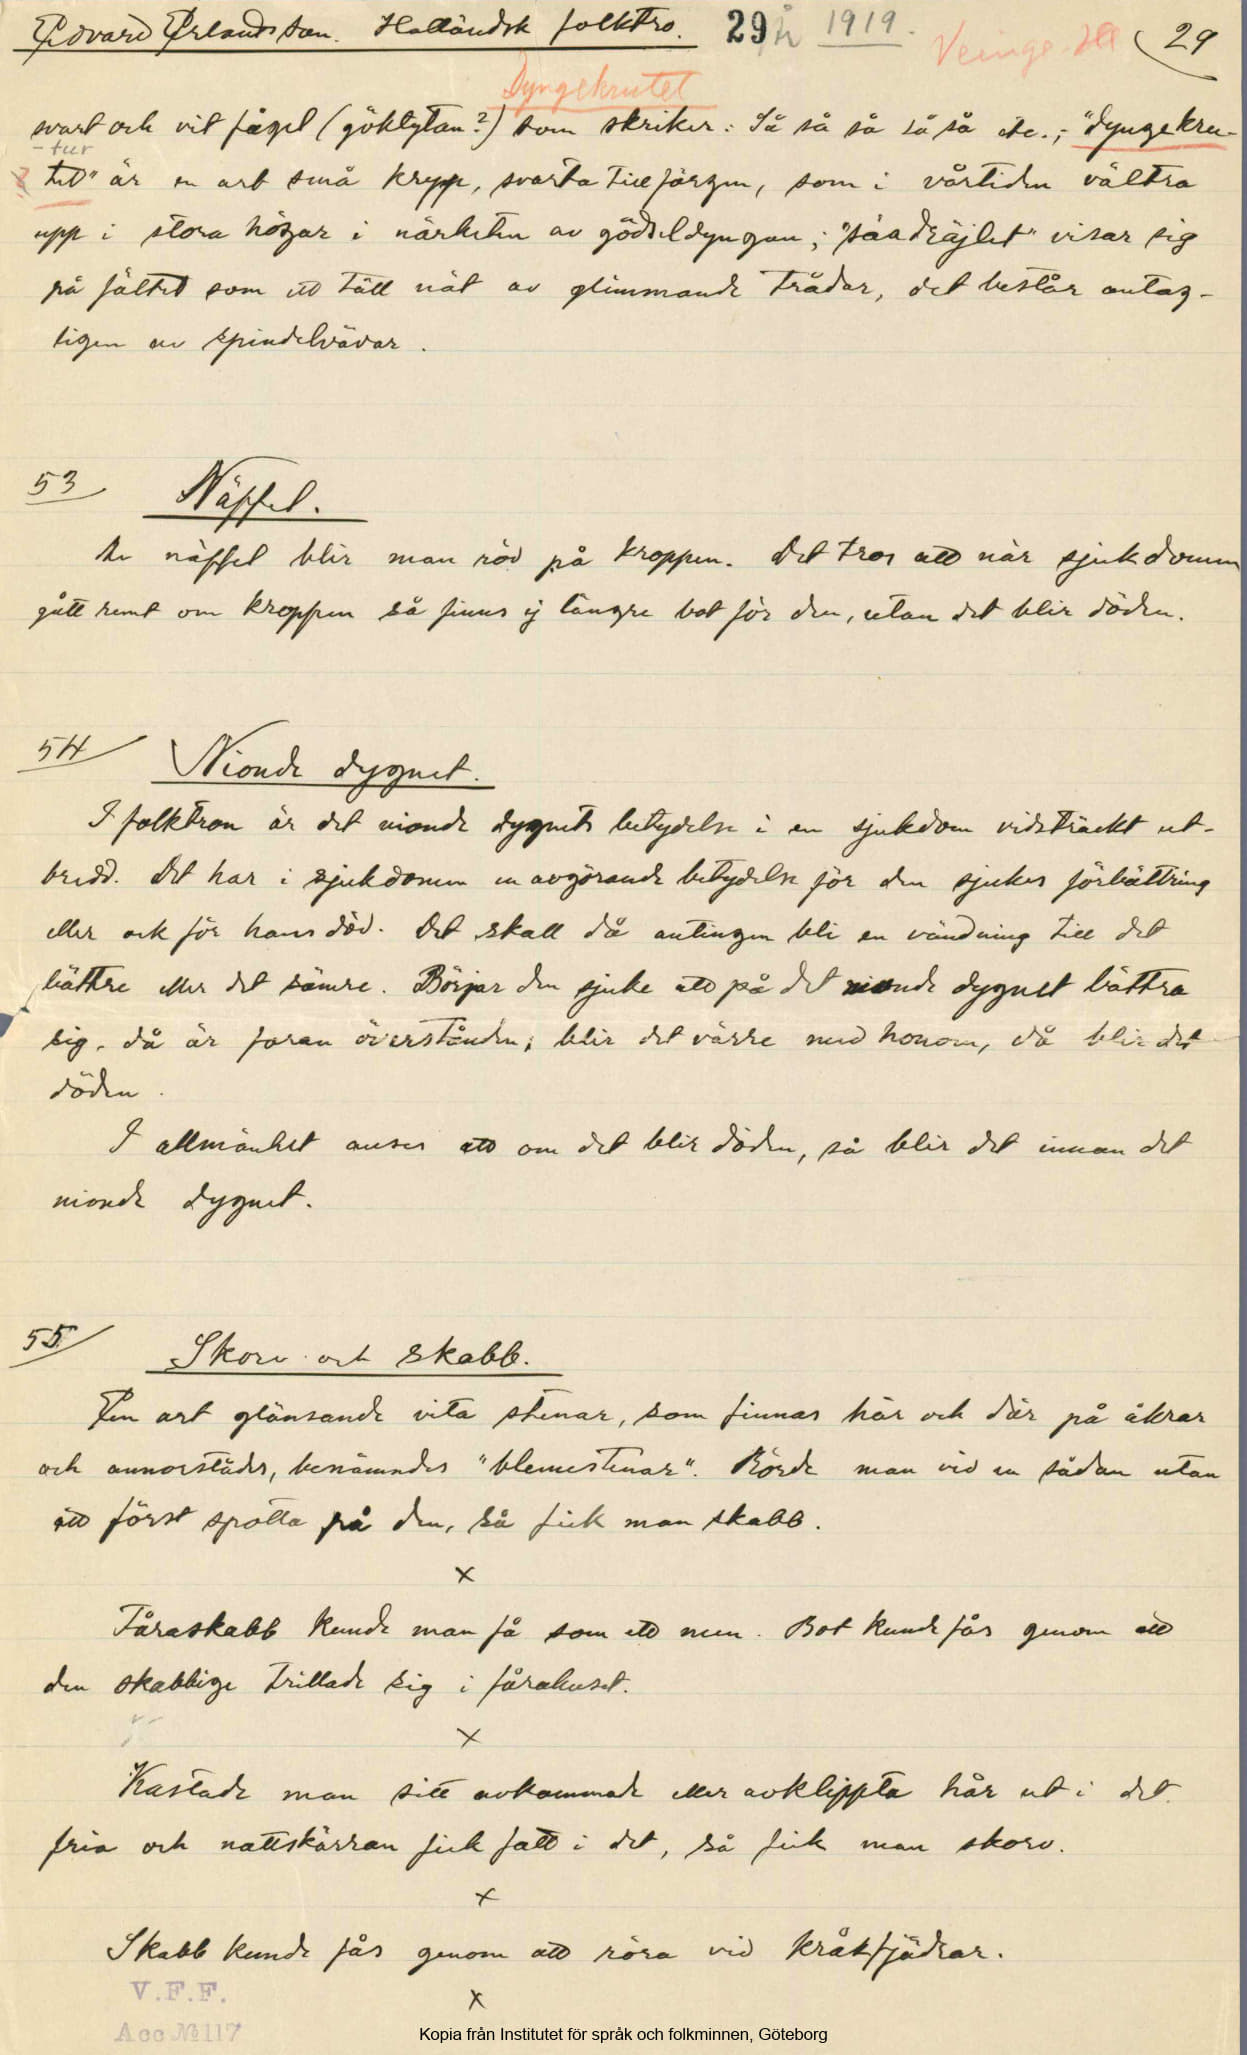 Edvard Erlandsson. Halländsk folktro. 29 1919. Veinge 29
Dyngekrutet
svart och vit fågel (göktytan?) som skriker: Så så så så så etc.; "dyngekru-
-tur
tet" är en art små kryp, svarta till färgen, som i vårtiden vältra
upp i stora högar i närheten av gödseldyngan; "såadräjlet" visar sig
på fältet som ett tätt nät av glimmande trådar, det består antag-
ligen av spindelvävar.
53 Näffel.
Av näffel blir man röd på kroppen. Det tros att när sjukdomen
gått runt om kroppen så finns ej längre bot för den, utan det blir döden.
54 Nionde dygnet.
I folktron är det nionde dygnets betydelse i en sjukdom vidsträckt ut-
bredd. Det har i sjukdomen en avgörande betydelse för den sjukes förbättring
eller ock för hans död. Det skall då antingen bli en vändning till det
bättre eller det sämre. Börjar den sjuke att på det nionde dygnet bättra
sig, då är faran överstånden; blir det värre med honom, då blir det
döden.
I allmänhet anses att om det blir döden, så blir det innan det
nionde dygnet.
55 Skorv och skabb.
En art glänsande vita stenar, som finnas här och där på åkrar
och annorstädes, benämndes "blemestenar". Rörde man vid en sådan utan
att först spotta på den, så fick man skabb.
x
Fåraskabb kunde man få som ett men. Bot kunde fås genom att
den skabbige trillade sig i fårahuset.
x
Kastade man sitt avkammade eller avklippta hår ut i det
fria och nattskärran fick fatt i det, så fick man skorv.
x
Skabb kunde fås genom att röra vid kråkfjädrar.
V.F.F.
x
Acc № 117
Kopia från Institutet för språk och folkminnen, Göteborg